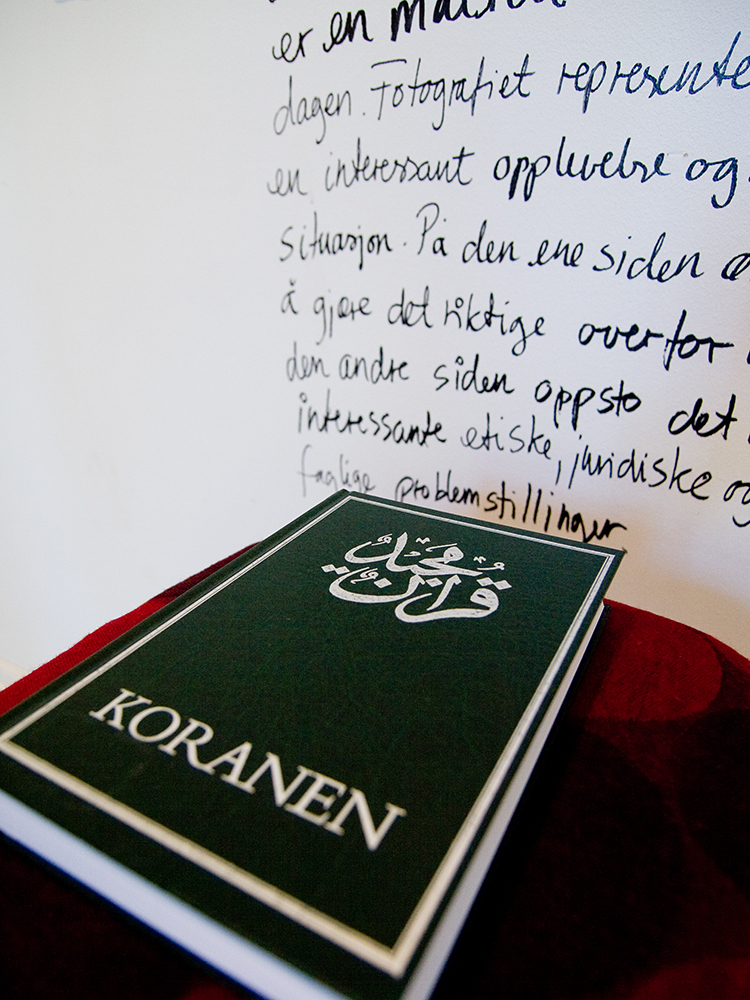 er en
dagen. Fotografiet represente
en interessant opplevelse og
situasjon. På den ene siden
å gjøre det riktige overfor
den andre siden oppsto det
interessante etiske, juridiske og
faglige problemstillinger
قرآن مجيد
KORANEN